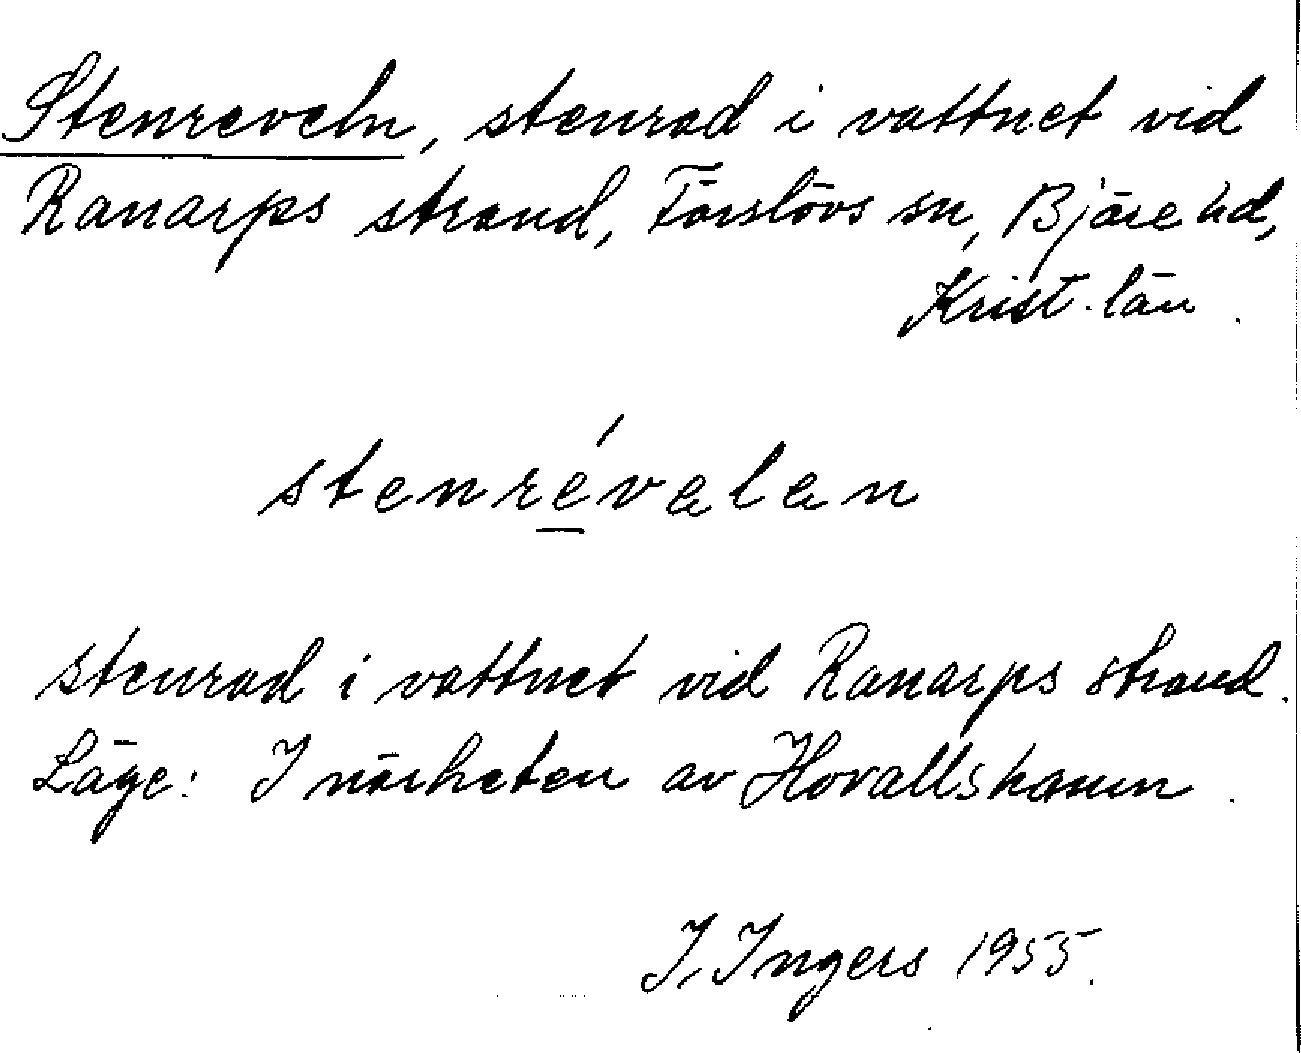 Stenreveln, stenrad i vattnet vid
Ranarps strand, Förslövs sn, Bjäre hd,
Krist. län.
stenrévəlɘn
stenrad i vattnet vid Ranarps strand.
Läge: I närheten av Hovallshamn.
I. Ingers 1955.